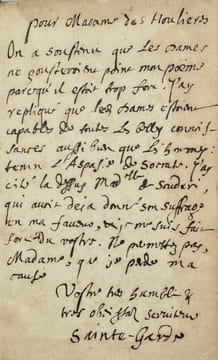 pour Madame des Houlieres
On a soustenu que les Dames
ne gousteroient point mon poëme
parcequ'il estoit trop fort. J'ay
repliqué que les Dames estoient
capables de toutes les belles connois
sances aussi bien que les hommes
temoin l'Aspasie de Socrate. J'ay
cité la dessus Madlle de Scuderi,
qui avoit deja donné son suffrage
en ma faveur, et je me suis fait
fort du vostre. Ne permettez pas,
Madame, que je perde ma
cause
Vostre tres humble &
tres obeissant serviteur
Sainte-Garde